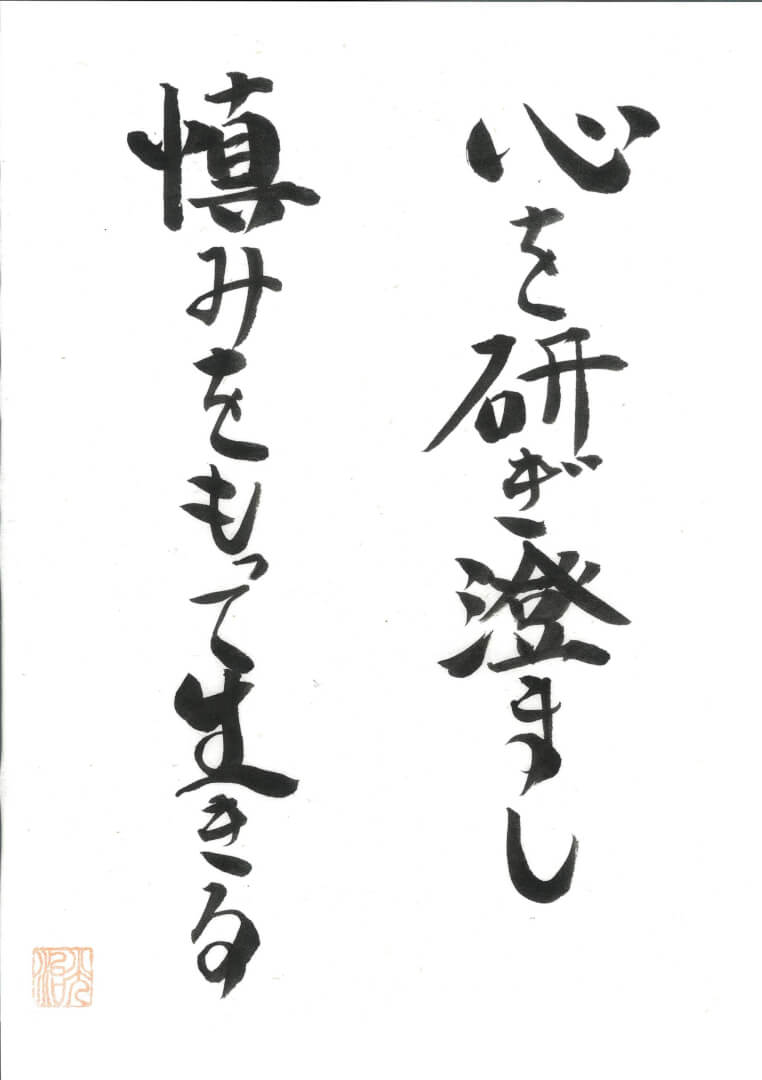 心を研ぎ澄まし
慎みをもって生きる